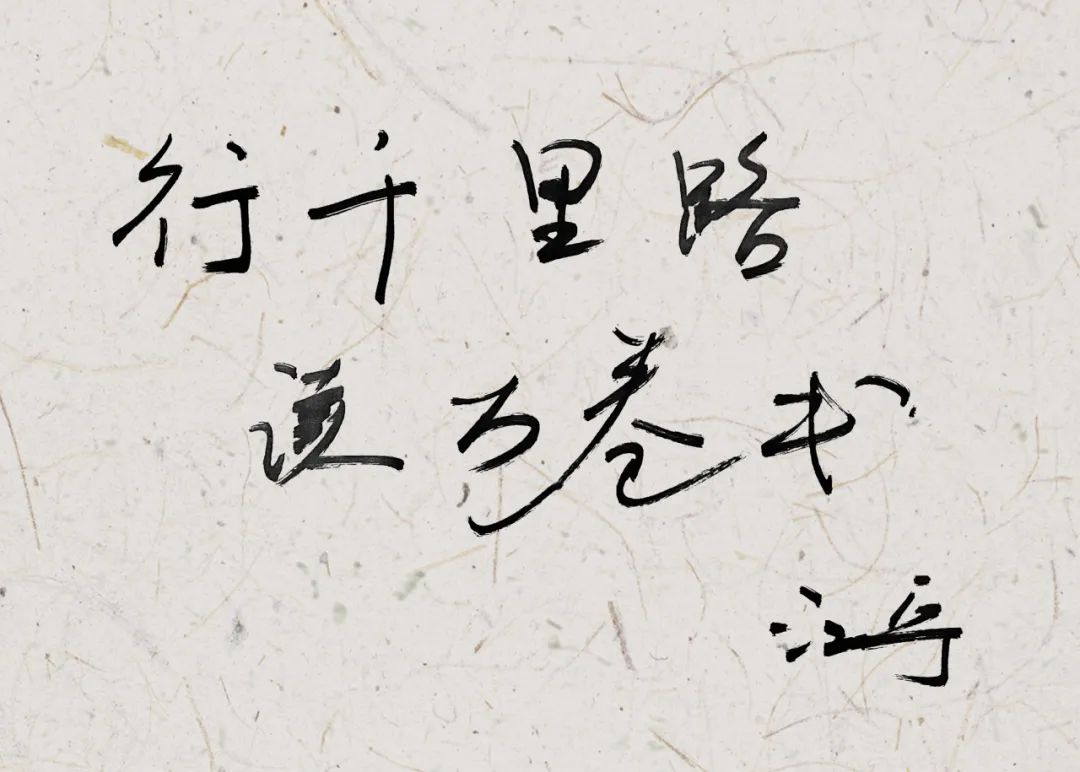 行千里路
读万卷书
江